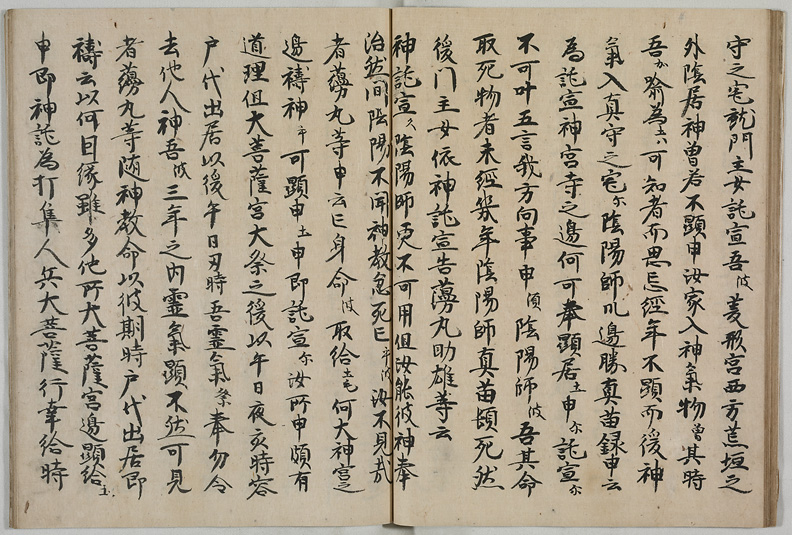 守之宅就門主女託宣吾波菱形宮西方荒垣之
外陰居神曽若不顕申汝家入神氣物曽其時
吾加祭為土八可知者而思忌經年不顕而後神
氣入真守之宅尓陰陽師川邊勝真苗録申云
為託宣神宮寺之邊何可奉顕居土申尓託宣尓
不可叶五言我方向事申須陰陽師波吾其命
取死物者未經幾年陰陽師真苗頓死然
後門主女依神託宣告薭丸助雄等云
神託宣久陰陽師更不可用但汝能彼神奉
治然間陰陽不聞神教急死亡乎波汝不見哉
者薭丸等申云亡身命波取給土毛何大神宮之
邊禱神乎可顕申土申即託宣尓汝所申頗有
道理但大菩薩宮大祭之後以午日夜亥時容
戸代出居以後午日刃時吾靈氣祭奉勿令
去他人神吾波三年之内靈氣顕不然可見
者薭丸等随神教命以彼期時戸代出居即
禱云以何因縁雖多他所大菩薩宮邊顕給土
申即神託為打集人兵大菩薩行幸給時